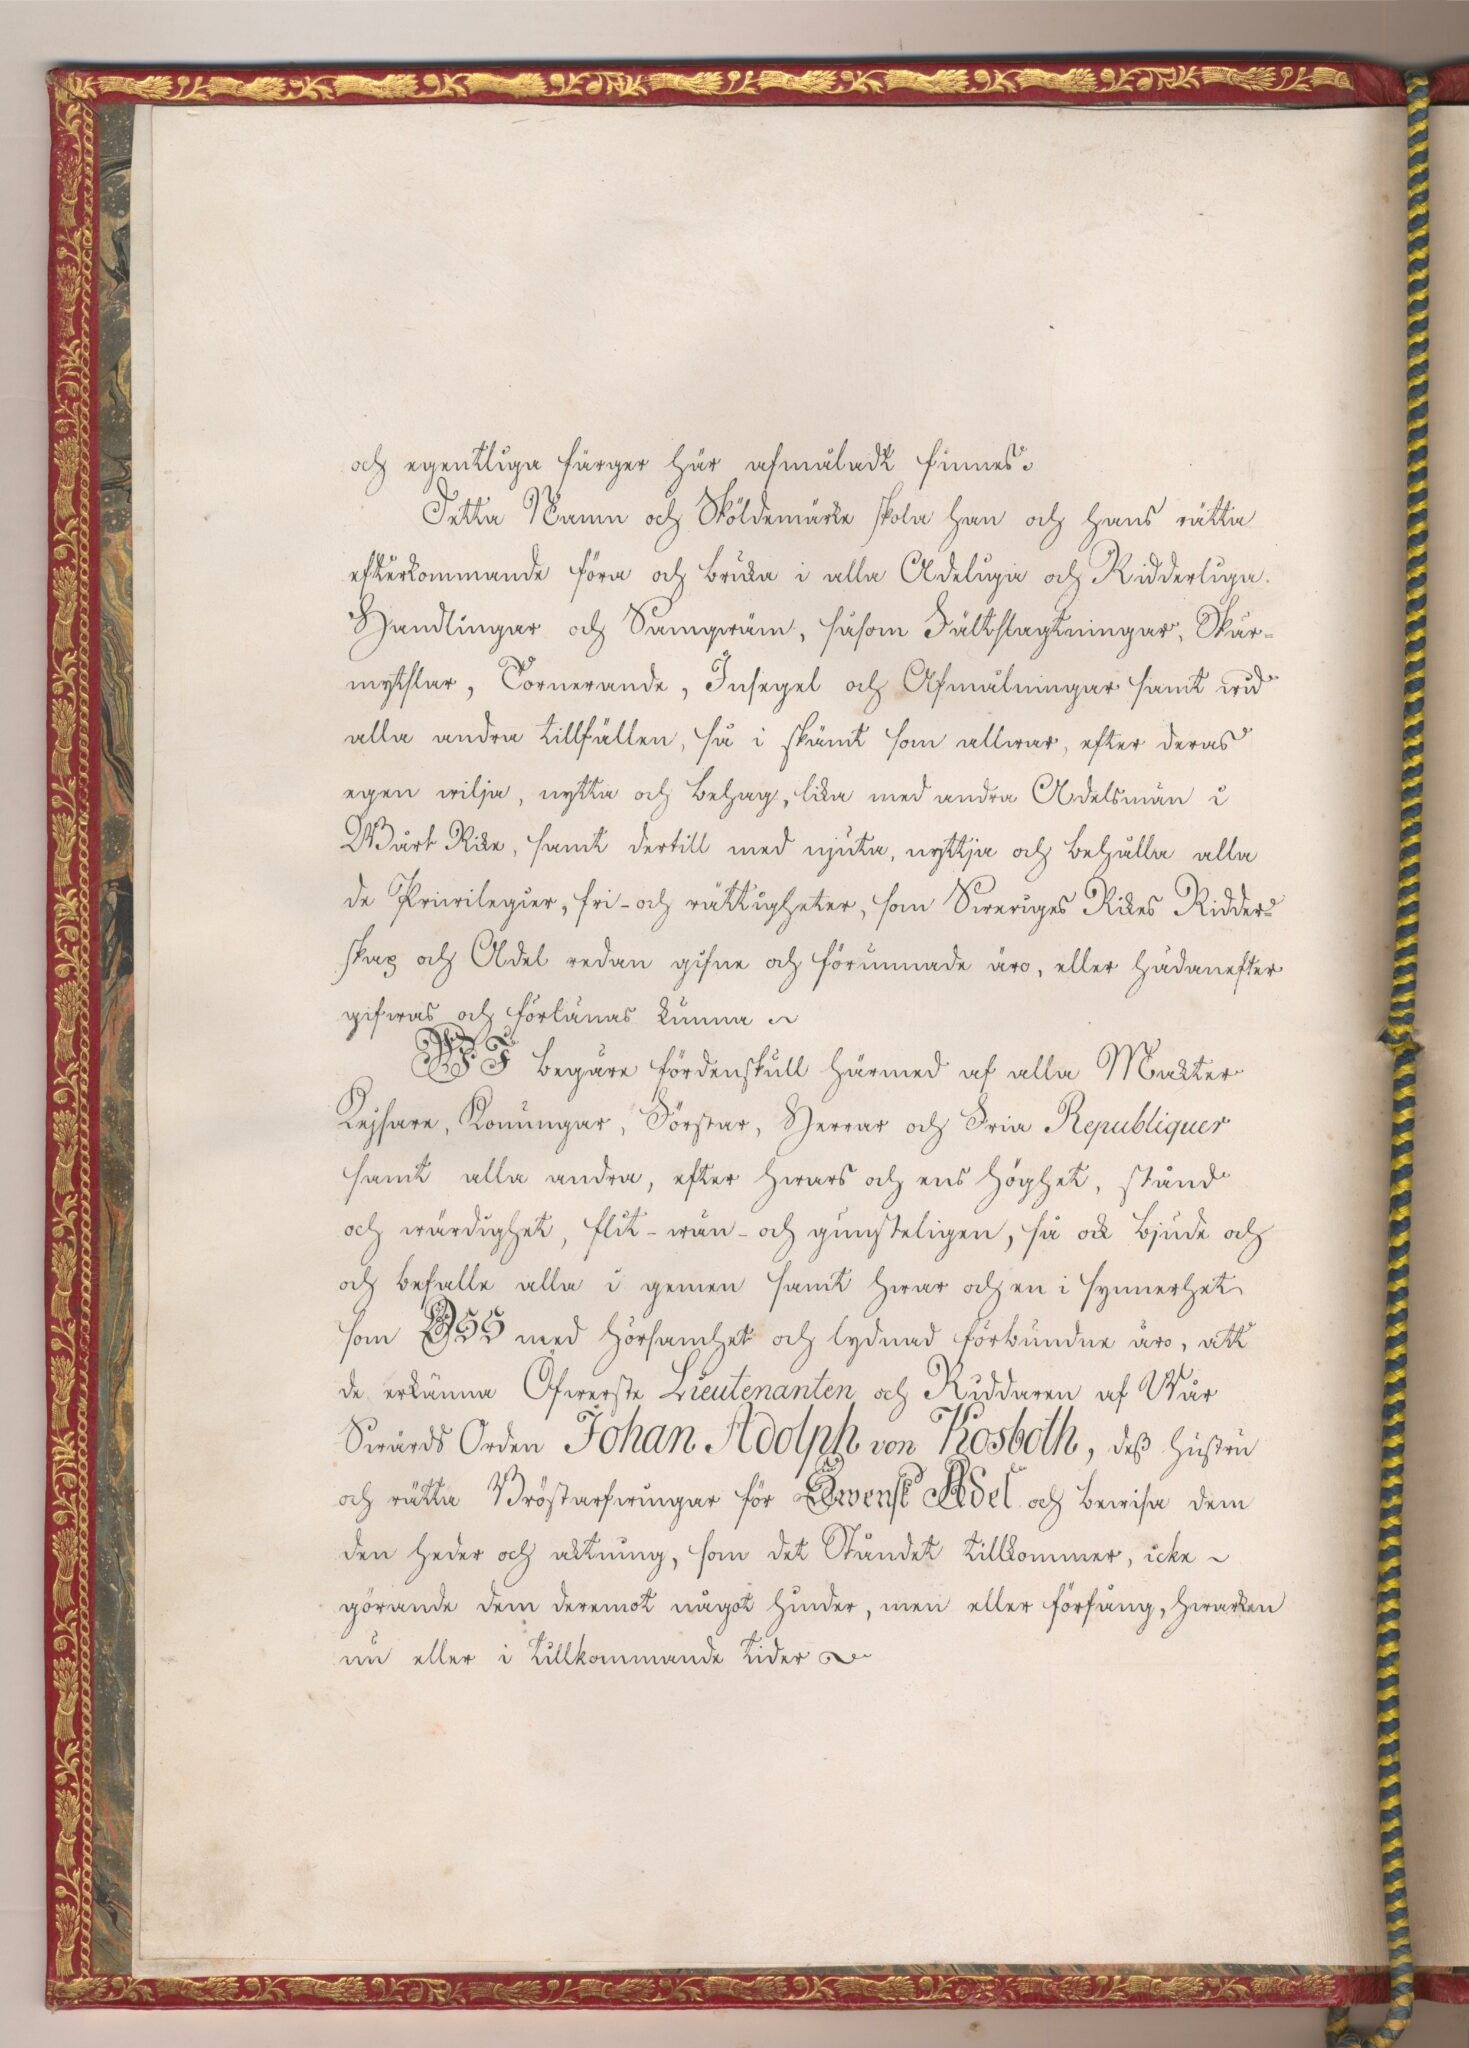 och egentliga färger här afmåladt finnes.
Detta Namn och Sköldemärke skola han och hans rätta
efterkommande föra och bruka i alla Adeliga och Ridderliga
Handlingar och Samqväm, såsom Fältslagtningar, Skär-
mytslar, Tornerande, Insegel och Afmålningar samt wid
alla andra tillfällen, så i skämt som allwar, efter deras
egen wilja, nytta och behag, lika med andra Adelsmän i
Wårt Rike, samt dertill med njuta, nyttja och behålla alla
de Priwilegier, fri- och rättigheter, som Sweriges Rikes Ridder-
skap och Adel redan gifne och förunnade äro, eller hädanefter
gifwas och förlänas kunna
WI begäre fördenskull härmed af alla Makter
Kejsare, Konungar, Förstar, Herrar och Fria Republiquer
samt alla andra, efter hwars och ens höghet, stånd
och wärdighet, flit- wän- och gunsteligen, så ock bjude och
och befalle alla i gemen samt hwar och en i synnerhet
som OSS med hörsamhet och lydnad förbundne äro, att
de erkänna Öfwerste Lieutenanten och Riddaren af Wår
Swärds Orden Johan Adolph von Kosboth, deß hustru
och rätta Bröstarfwingar för Swensk Adel och bewisa dem
den heder och aktning, som det Ståndet tillkommer, icke
görande dem deremot något hinder, men eller förfång, hwarken
nu eller i tillkommande tider